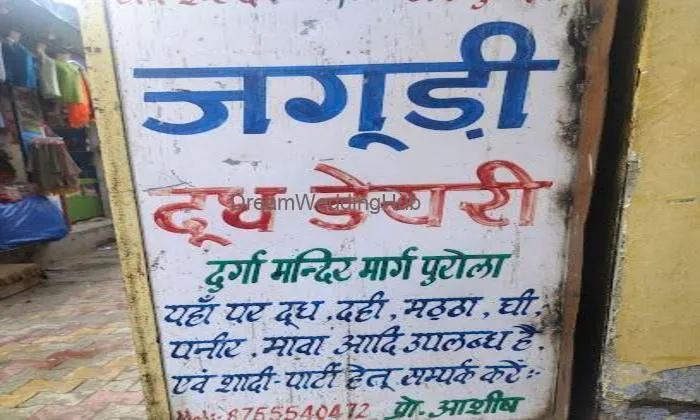 जगूड़ी
दूध डेयरी
DreamWeddingHub
दुर्गा मन्दिर मार्ग पुरोला
यहाँ पर दूध, दही, मठ्ठा, घी,
पनीर, मावा आदि उपलब्ध है.
एवं शादी-पार्टी हेतू सम्पर्क करें:-
8755540472 प्रो. आशीष